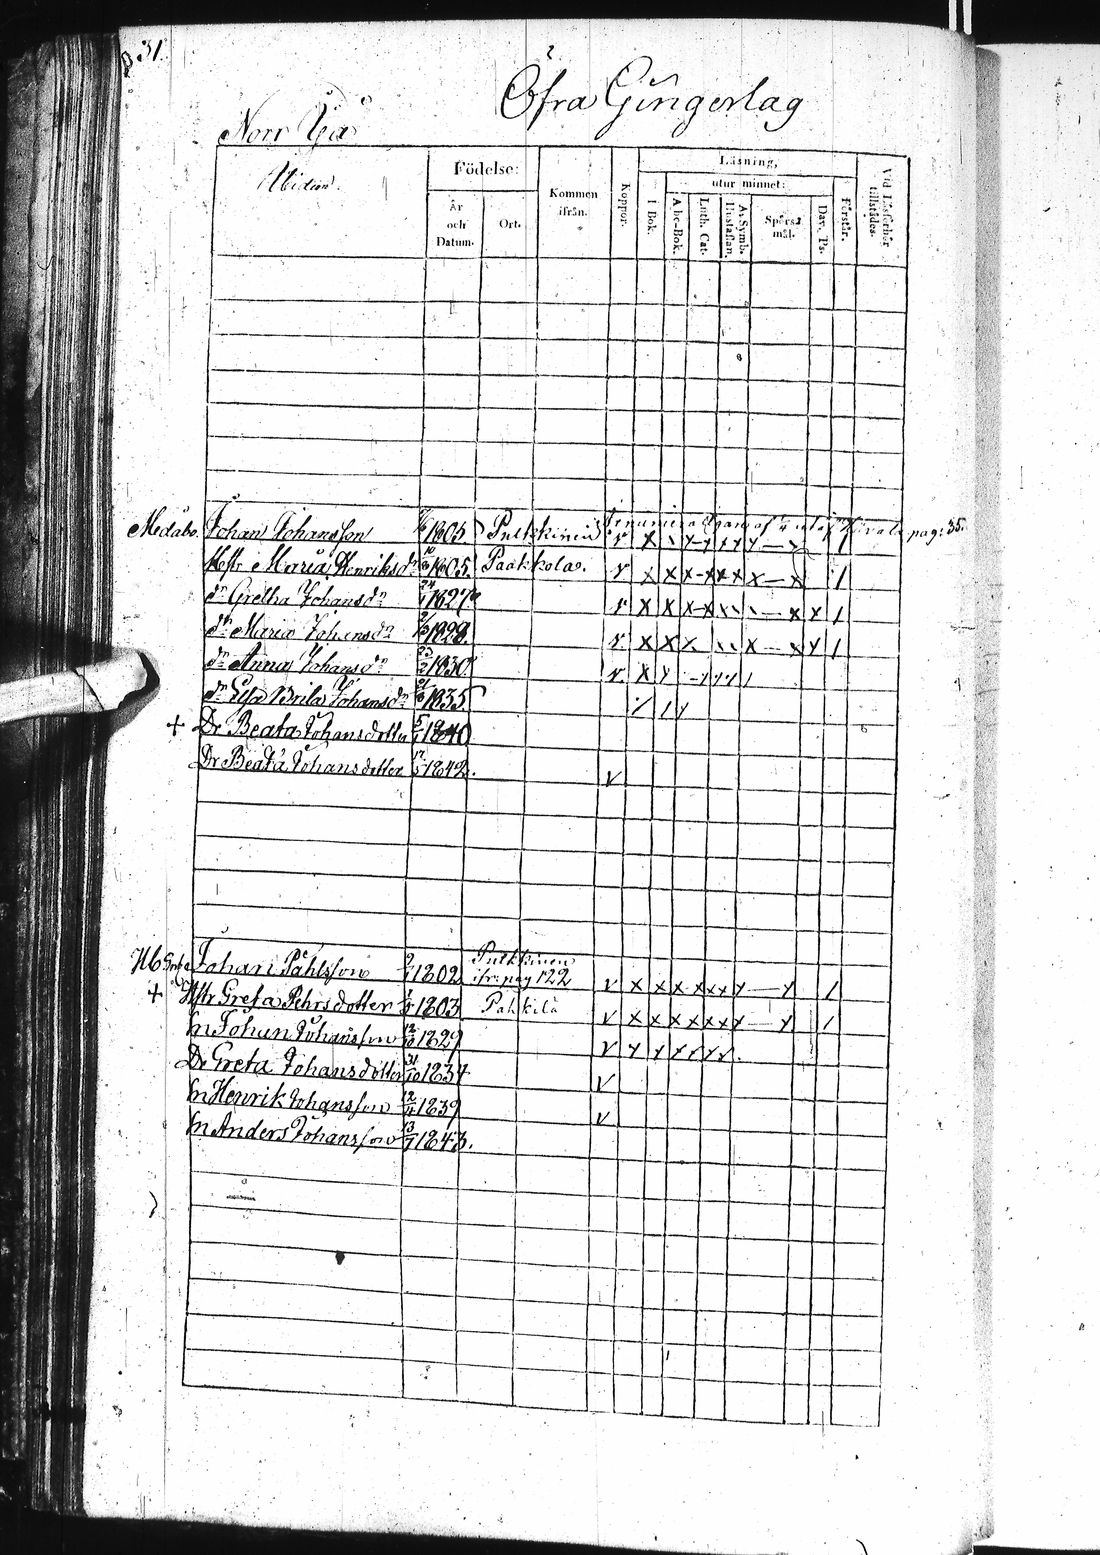 p 31.
Öfra Gingerlag
Norr Yå
Födelse:
År och Datum.
Ort.
Kommen ifrån.
Koppor.
Läsning,
utur minnet:
I Bok.
Abc-Bok.
Luth. Cat.
At. Symb. Hustaflan.
Spörsmål.
Dav. Ps.
Förstår.
Vid Läsförhör tillstädes.
Medåbo. Johan Johansson 1805 Pulkkinen pag: 35.
Hstr Maria Henriksdr 1805. Paakkola.
dr Gretha Johansdr 24 1827
dr Maria Johansdr 1828
dr Anna Johansdr 23/2 1830
dr Eva Brita Johansdr 1835
+ Dr Beata Johansdotter 5/1 1840
Dr Beata Johansdotter 17 1842. v
Johan Påhlsson 1802 Pulkkinen ifr. pag 122
+ Hstr Greta Pehrsdotter 1803 Pahkila
Sn Johan Johansson 12/10 1829
Dr Greta Johansdotter 31/10 1834 v
Sn Henrik Johansson 12/11 1839 v
Sn Anders Johansson 13/7 1843.